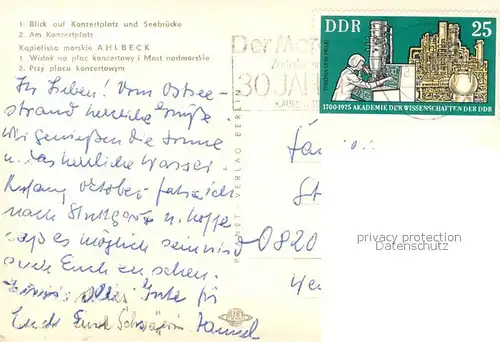 1. Blick auf Konzertplatz und Seebrücke
2. Am Konzertplatz
Kąpielisko morskie AHLBECK
1. Widok na plac koncertowy i Most nadmorskie
2. Przy placu koncertowym
DDR 25
1700-1975 AKADEMIE DER WISSENSCHAFTEN DER DDR
30 JAH
PLANET-VERLAG BERLIN
Ihr Lieben! Vom Ostsee-
strand herzliche Grüße.
Wir genießen die Sonne
u. das herrliche Wasser.
Anfang Oktober fahre ich
nach Stuttgart u. hoffe
daß es möglich sein wird
auch Euch zu sehen.
alles Gute für
Euch Eure Schwägerin
0820
privacy protection
Datenschutz